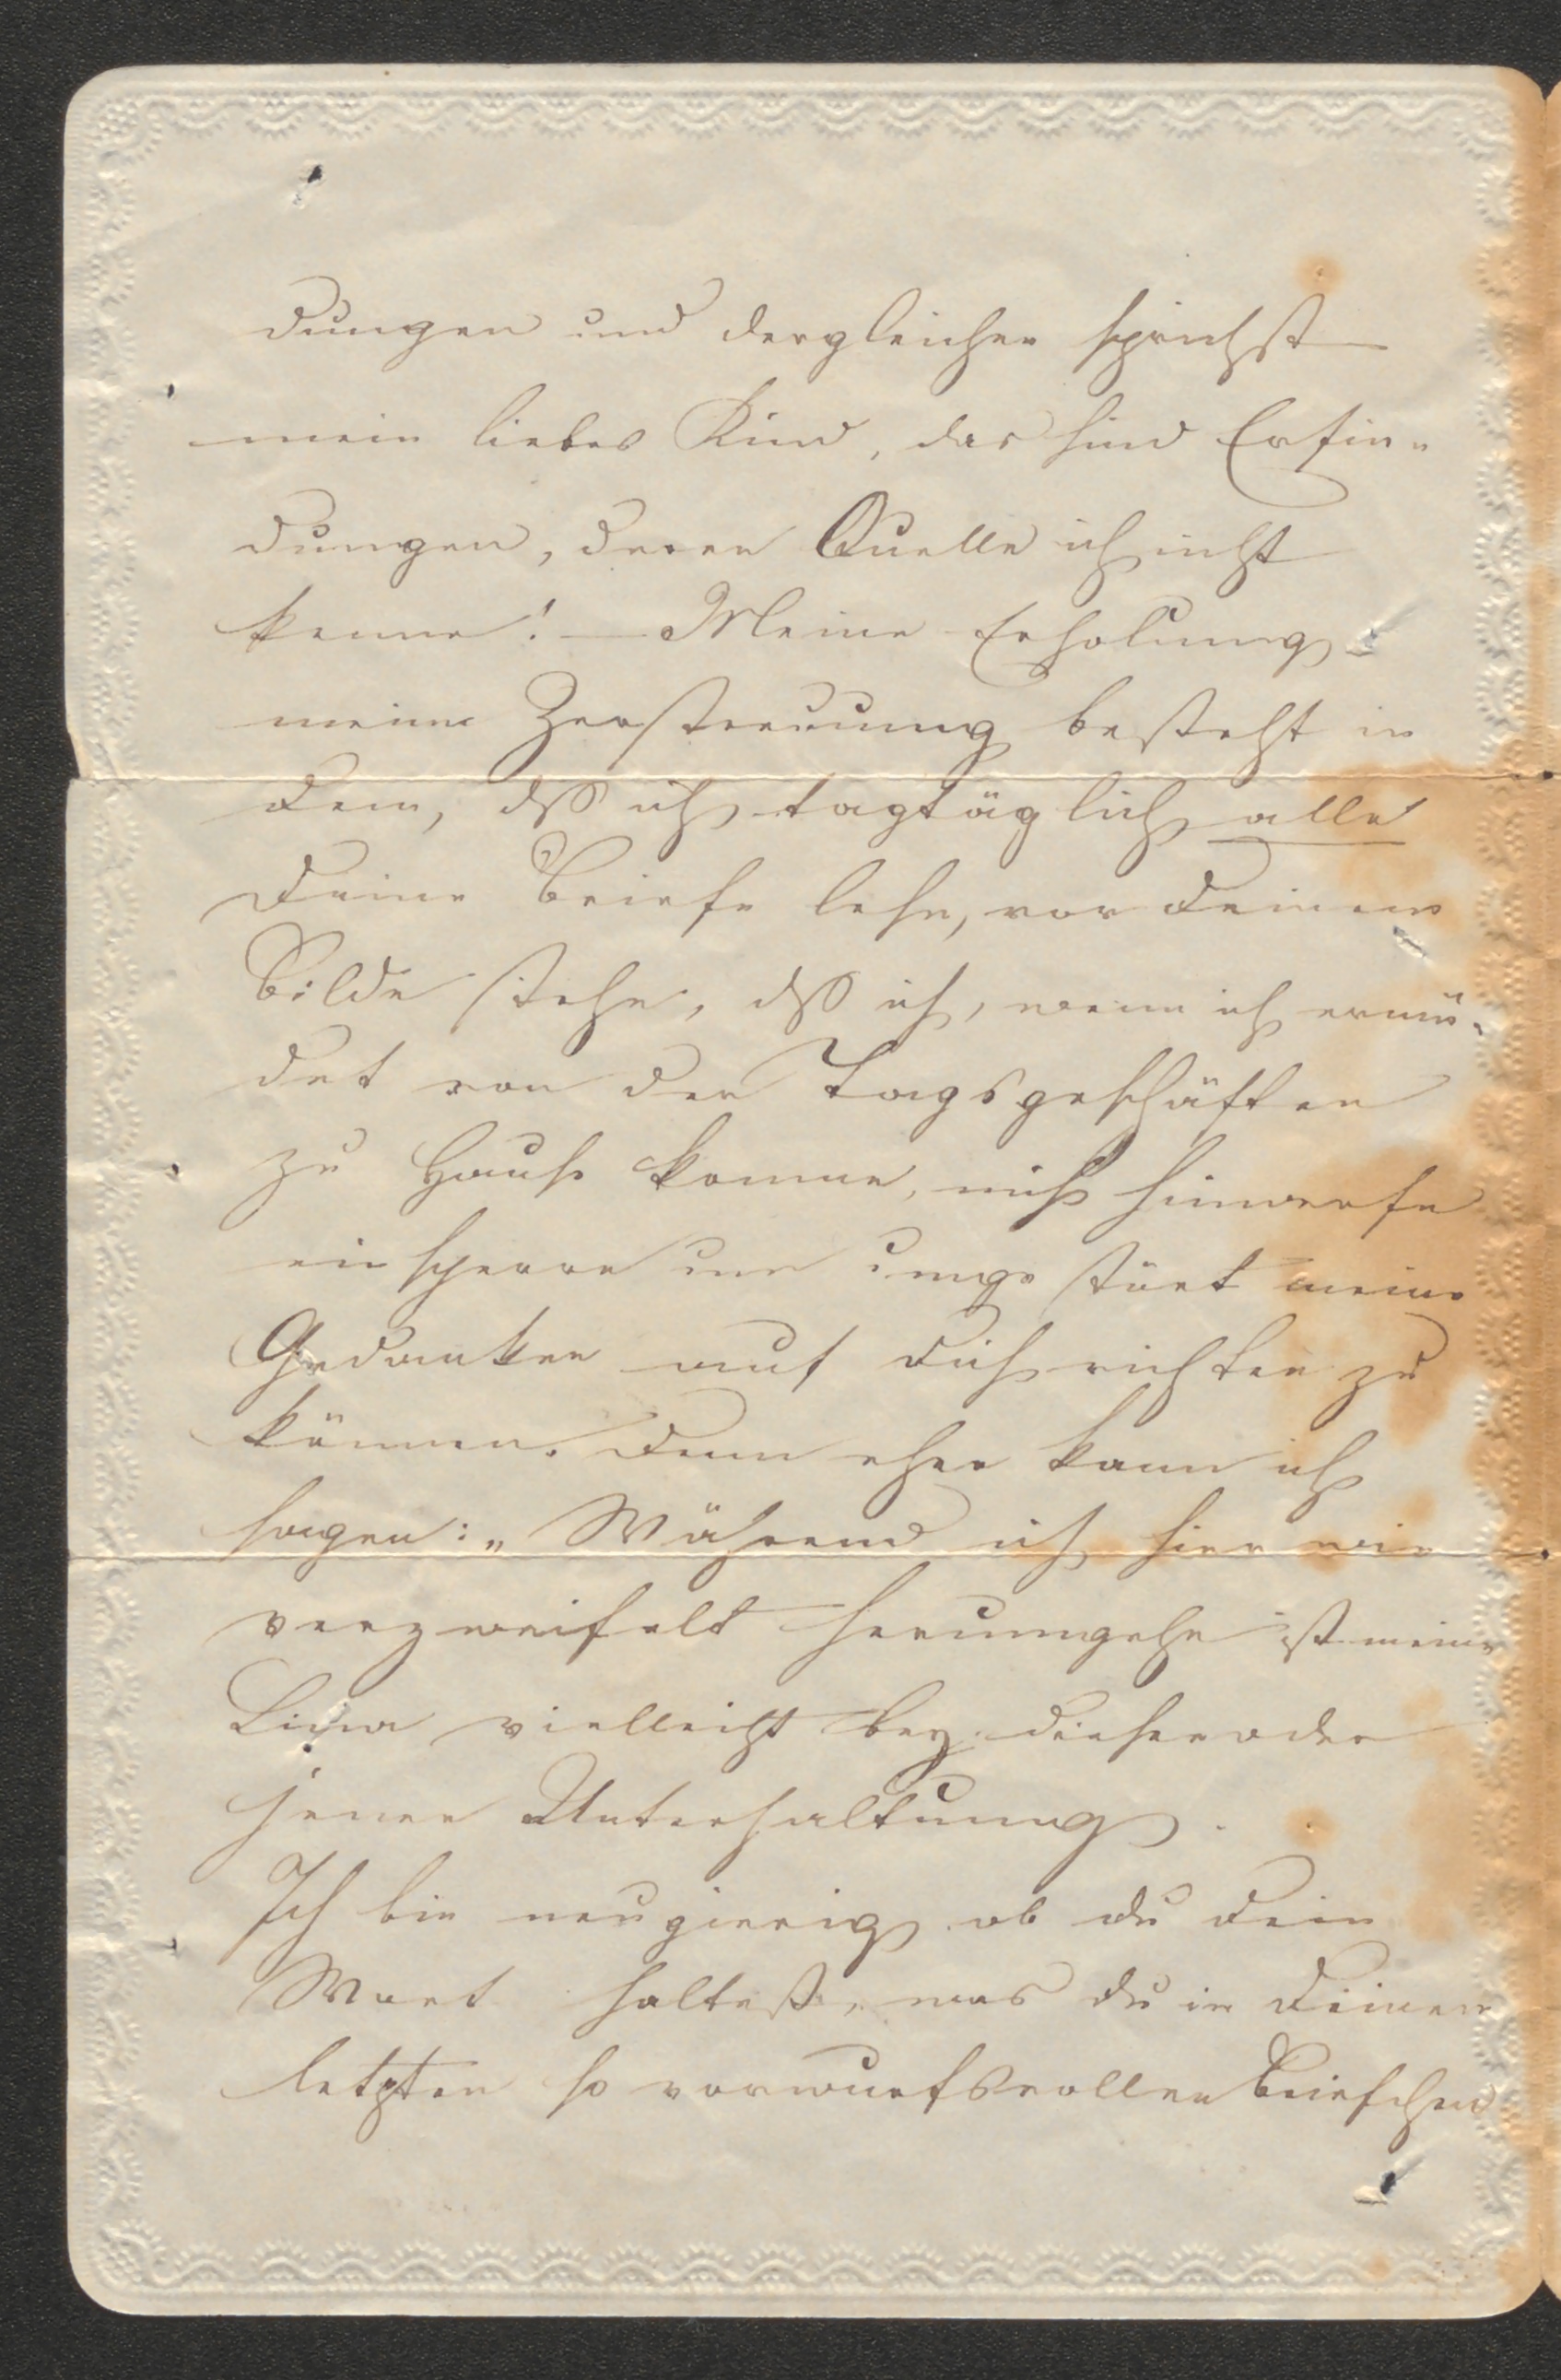 dungen und dergleichen sprichst
mein liebes Kind, das sind Erfin-
dungen, deren Quelle ich nicht
kenne! — Meine Erholung
meine Zerstreuung besteht in
dem, dß ich tagtäglich alle
Deine Briefe lese, vor Deinem
Bilde stehe, dß ich, wenn ich ermü-
det von den Tagsgeschäften
zu Hause komme, mich hinwerfe
einsperre um ungestört meine
Gedanken auf Dich richten zu
können. Denn eher kann ich
sagen: „Während ich hier wie
verzweifelt herumgehe ist meine
Lina vielleicht bey dieser oder
jener Unterhaltung.
Ich bin neugierig ob du Dein
Wort haltest, was du in Deinen
letzten so vorwurfsvollen Briefchen